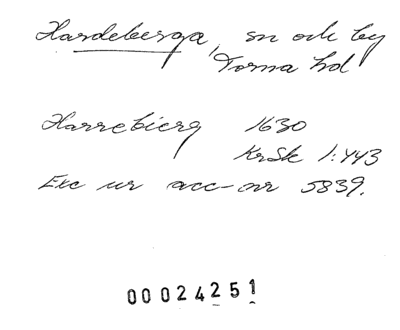 Hardeberga, sn och by
Torna hd
Harrebierg 1630
KrSk 1:443
Exc ur acc-nr 5839.
00024251